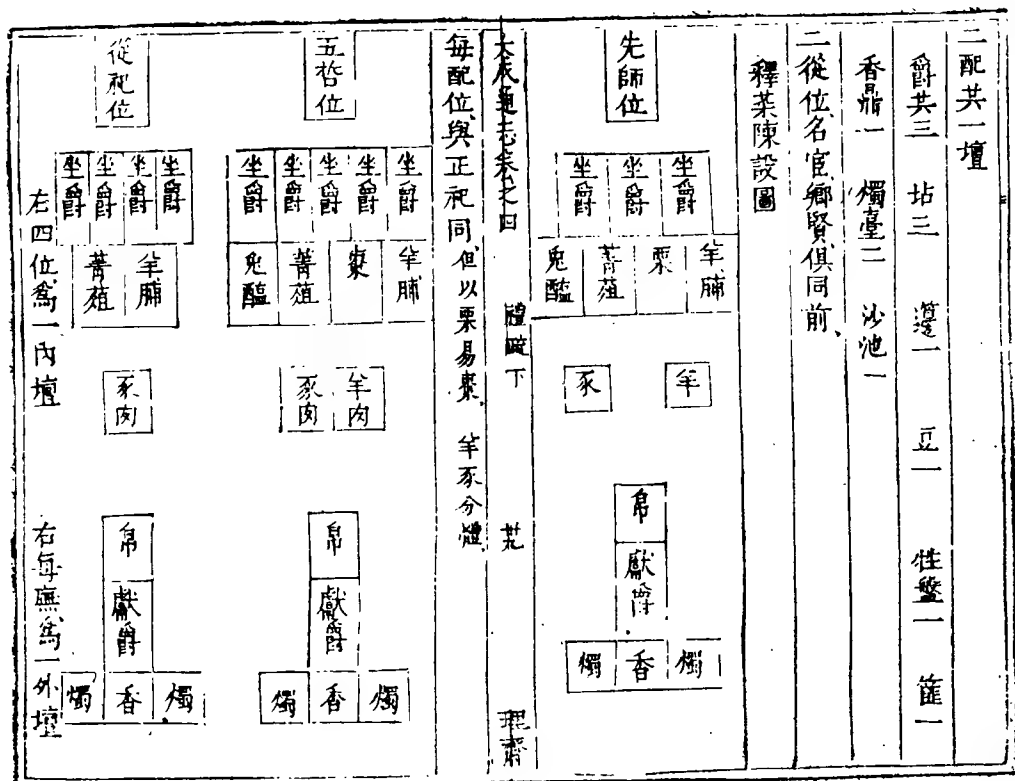 二配共一壇
爵共三 坫三 籩一 豆一 牲盤一 篚一
香鼎一 燭臺二 沙池一
二從位名宦鄉賢俱同前、
釋菜陳設圖
先師位
坐爵 坐爵 坐爵
羊脯 栗 菁葅 兔醢
羊 豕
帛
獻爵
燭 香 燭
大成通志卷之四 禮疏下 理齋
每配位與正祀同、但以栗易棗、羊豕分體
五哲位
坐爵 坐爵 坐爵 坐爵 坐爵
羊脯 棗 菁葅 兔醢
羊肉 豕肉
帛
獻爵
燭 香 燭
從祀位
坐爵 坐爵 坐爵 坐爵
羊脯 菁葅
豕肉
帛
獻爵
燭 香 燭
右四位爲一內壇 右每廡爲一外壇